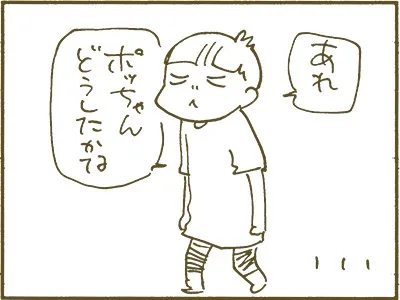 あれ
ポッちゃん
どうしたかな